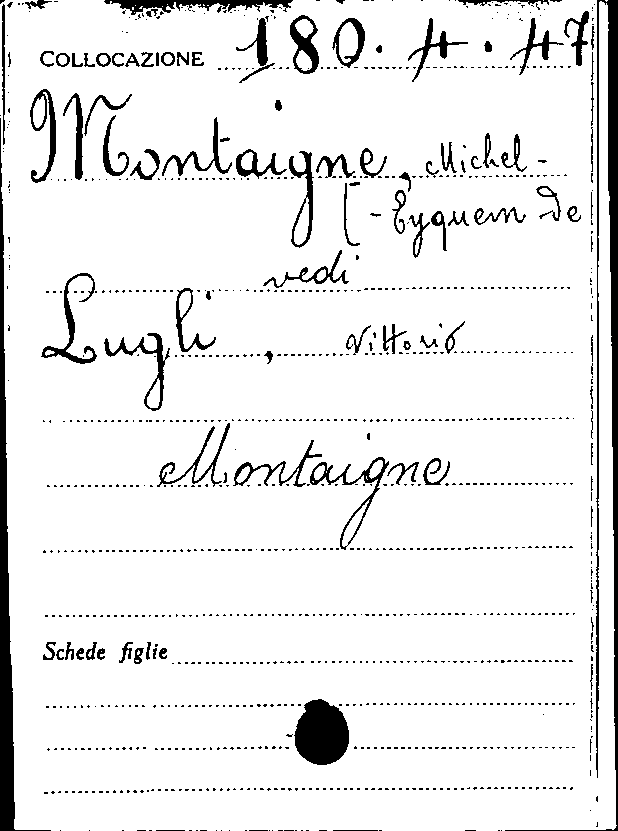 COLLOCAZIONE 180.4.47
Montaigne, Michel-
[-Eyquem de
vedi
Lugli, Vittorio
Montaigne
Schede figlie